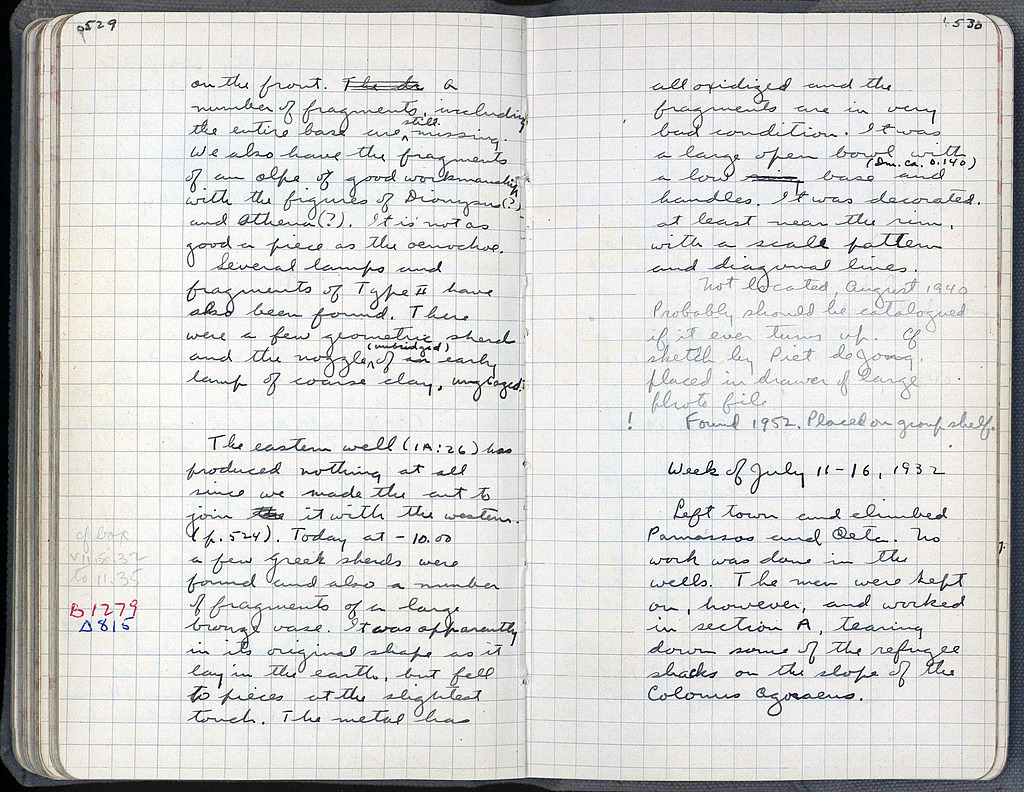 529
on the front. The de a
number of fragments, including
the entire base are still missing.
We also have the fragments
of an olpe of good workmanship
with the figures of Dionysus(?)
and Athena(?). It is not as
good a piece as the oenochoe.
Several lamps and
fragments of Type II have
also been found. There
were a few geometric sherds
and the nozzle (unbridged) of an early
lamp of coarse clay, unglazed.
The eastern well (1A:26) has
produced nothing at all
since we made the cut to
join the it with the western.
(p. 524). Today at -10.00
a few Greek sherds were
found and also a number
of fragments of a large
bronze vase. It was apparently
in its original shape as it
lay in the earth, but fell
to pieces at the slightest
touch. The metal has
cf box
VII.5.32
to 11.35
B1279
Δ815
530
all oxidized and the
fragments are in very
bad condition. It was
a large open bowl with
(Dm. ca. 0.140)
a low base and
handles. It was decorated.
at least near the rim,
with a scale pattern
and diagonal lines.
Not located, August 1940
Probably should be catalogued
if it ever turns up. Cf
sketch by Piet de Jong.
placed in drawer of large
photo file
! Found 1952. Placed on group shelf.
Week of July 11-16, 1932
Left town and climbed
Parnassos and Oeta. No
work was done in the
wells. The men were kept
on, however, and worked
in section A, tearing
down some of the refugee
shacks on the slope of the
Colonus Agoraeus.